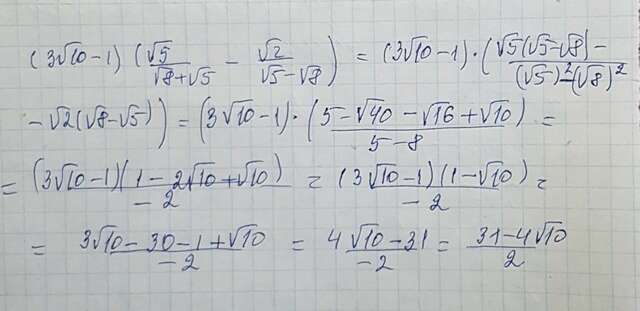 (3√10-1) (√5/(√8+√5) - √2/(√5-√8)) = (3√10-1)·(√5(√5-√8)-/(√5)²-(√8)²
-√2(√8-√5)) = (3√10-1)·(5-√40-√16+√10)/(5-8) =
= (3√10-1)(1-2√10+√10)/-2 = (3√10-1)(1-√10)/-2 =
= (3√10-30-1+√10)/-2 = (4√10-31)/-2 = (31-4√10)/2